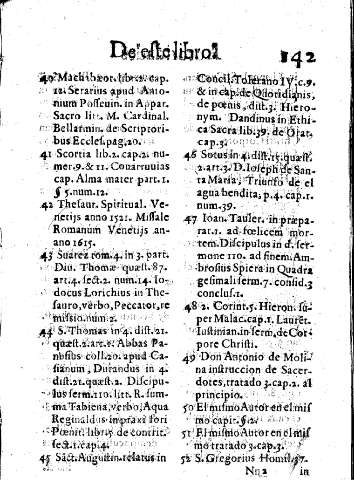 De este libro. 142
40 Machi libres. cap.
12. Serarius apud Anto-
nium Posseuin. in Appar.
Sacro litt. M. Cardinal.
Bellarmin. de Scriptori-
bus Eccles. pag. 20.
41 Scortia lib. 2. cap. 2. nu-
mer. 9. & 11. Couarruuias
cap. Alma mater part. 1.
§ 5. num. 12.
42 Thesaur. Spiritual. Ve-
netijs anno 1521. Missale
Romanum Venetijs an-
no 1615.
43 Suarez rom. 4. in 3. part.
Diu. Thomæ quæst. 87.
art. 4. sect. 2. num. 14. Io-
docus Lorichius in The-
sauro, verbo, Peccator, re
missio. num. 2.
44 S. Thomas in 4. dist. 21.
quæst. 2. art. 2. Abbas Pa-
nusius coll. 20. apud Ca-
sianum, Durandus in 4.
dist. 21. quæst. 2. Discipu-
lus ser. 110. lit. R. sum-
ma Tabiena, verbo, Aqua
Reginaldus in praxi fori
Pœnit. lib. 5. de contrit.
sect. 1. cap. 4.
45 Säct. Augustin. relatus in
Concil. Toletano IV. c. 9.
& in cap. de Quotidianis,
de pœnis, dist. 3. Hiero-
nym. Dandinus in Ethi-
ca Sacra lib. 39. de Orat.
cap. 3.
46 Sotus in 4. dist. 15. quæst.
2. art. 3. D. Ioseph de San-
ta Maria, Triunfo de el
agua bendita, p. 4. cap. 1.
num. 39.
47 Ioan. Tauler. in præpa-
rat. 1. ad fœlicem mor-
tem. Discipulus in d. ser-
mone 110. ad finem. Am-
brosius Spiera in Quadra
gesimali serm. 7. consid. 3
conclus. 1.
48 2. Corint. 5. Hieron. su-
per Malac. cap. 1. Lauret.
Iustinian. in serm. de Cor-
pore Christi.
49 Don Antonio de Moli-
na instruccion de Sacer-
dotes, tratado 3. cap. 2. al
principio.
50 El mismo Autor en el mis
mo capit. §. 2.
51 El mismo Autor en el mis
mo tratado 3. cap. 3.
52 S. Gregorius Homil. 37.
Nn 2 in